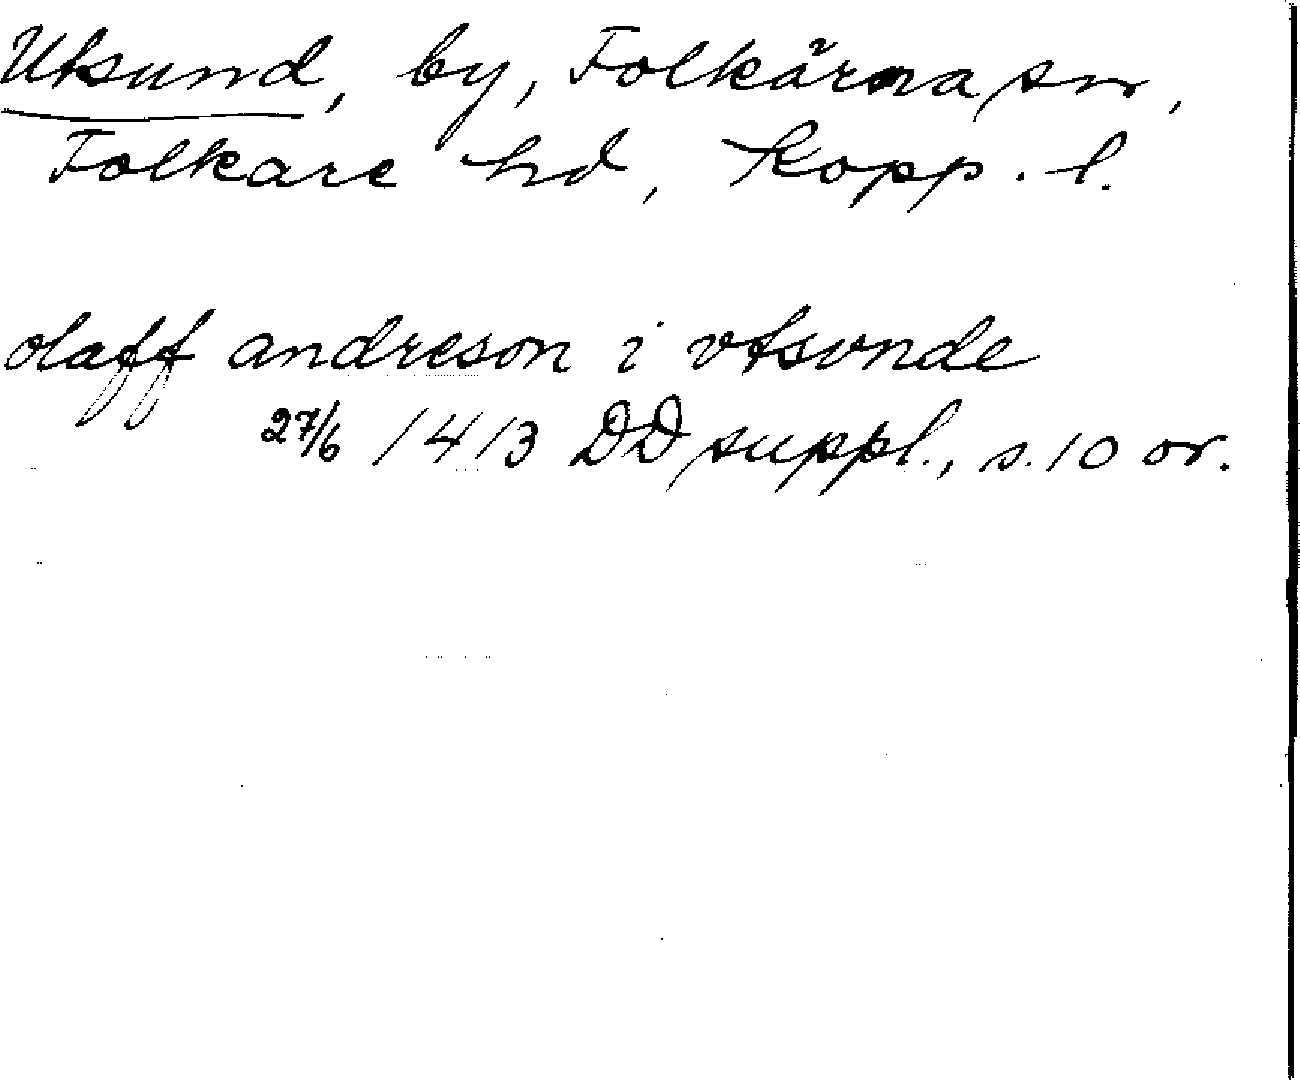 Utsund, by, Folkärna sn,
Folkare hd, Kopp. l.
olaff andreson i vtsvnde
27/6 1413 DD suppl., s. 10 or.